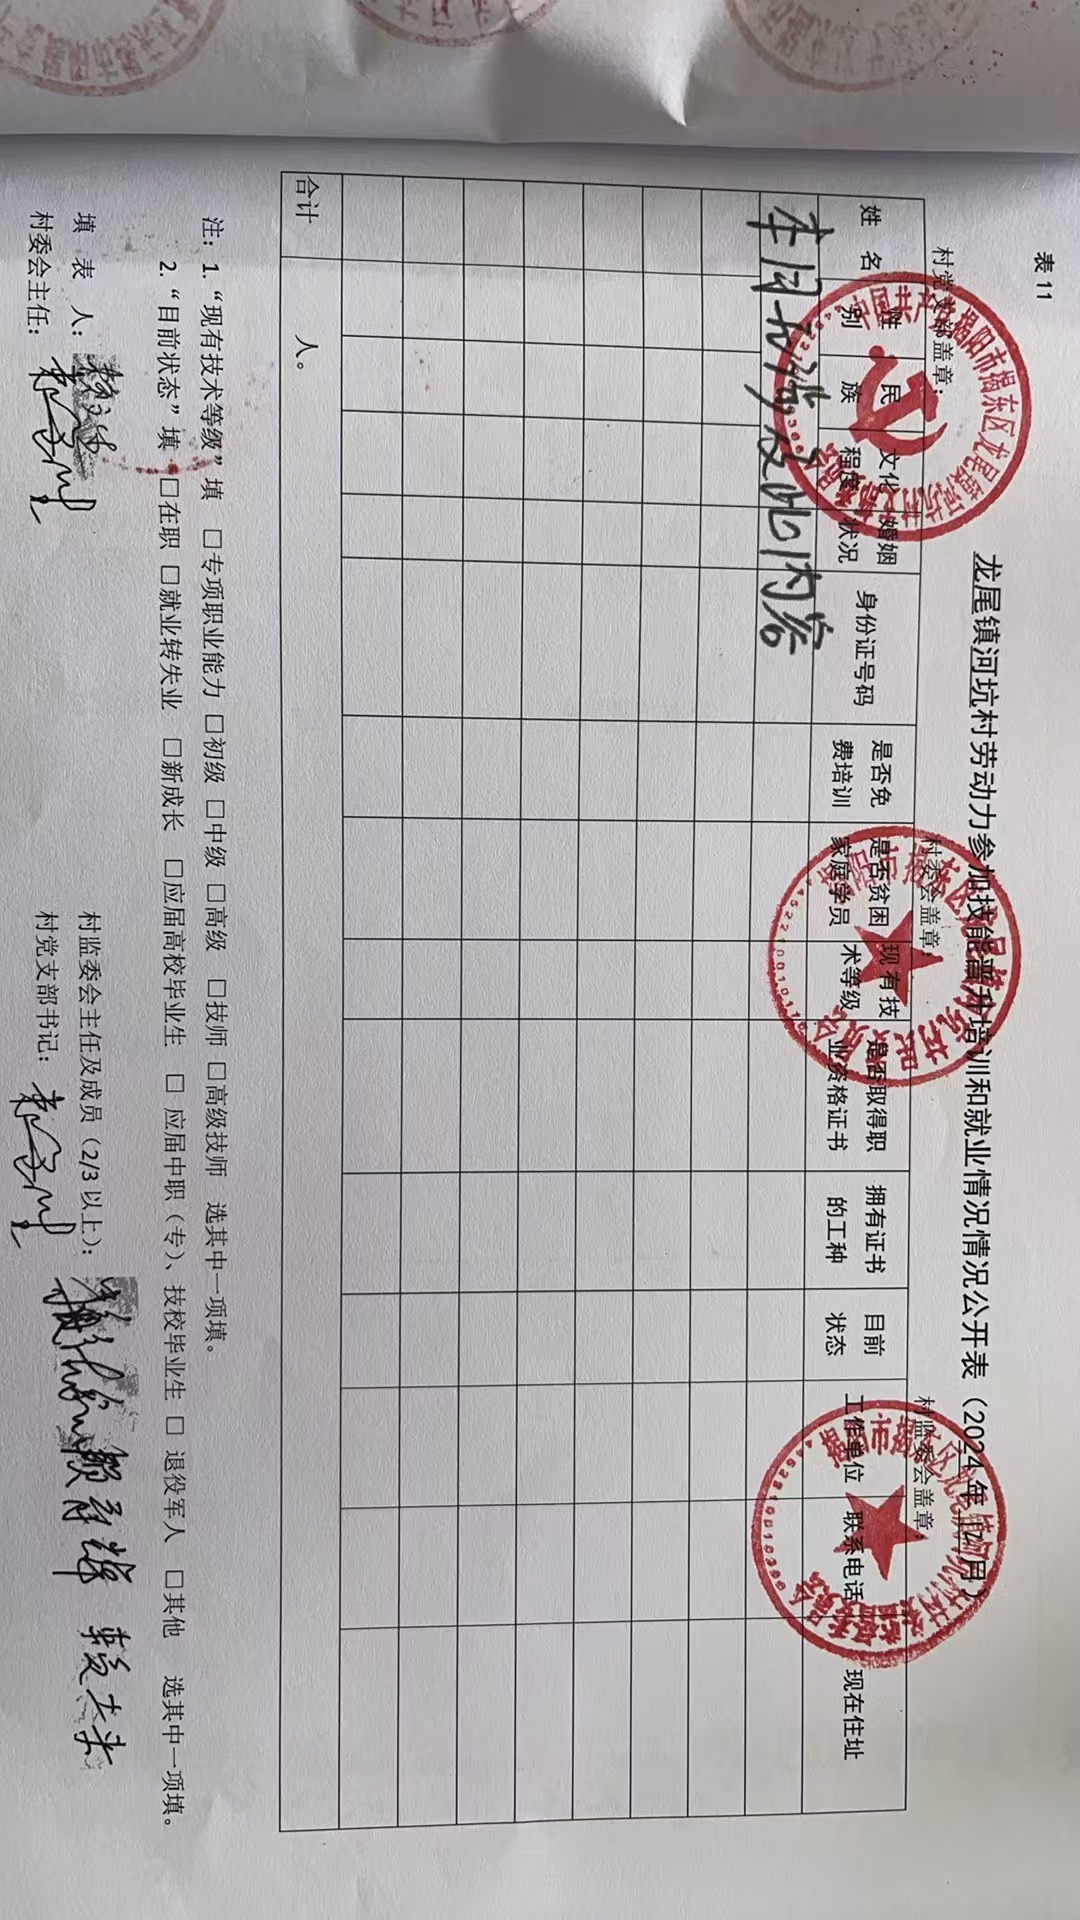 表 11
龙尾镇河坑村劳动力参加技能晋升培训和就业情况情况公开表（2024 年 12 月）
村党支部盖章： 村委会盖章： 村监委会盖章：
姓 名 性别 民族 文化程度 婚姻状况 身份证号码 是否免费培训 是否贫困家庭学员 现有技术等级 是否取得职业资格证书 拥有证书的工种 目前状态 工作单位 联系电话 现在住址
本月无涉及此内容
合计 人。
注：1.“现有技术等级”填 □专项职业能力 □初级 □中级 □高级 □技师 □高级技师 选其中一项填。
2.“目前状态”填 □在职 □就业转失业 □新成长 □应届高校毕业生 □ 应届中职（专）、技校毕业生 □ 退役军人 □其他 选其中一项填。
填 表 人： 村监委会主任及成员（2/3 以上）：
村委会主任： 村党支部书记：